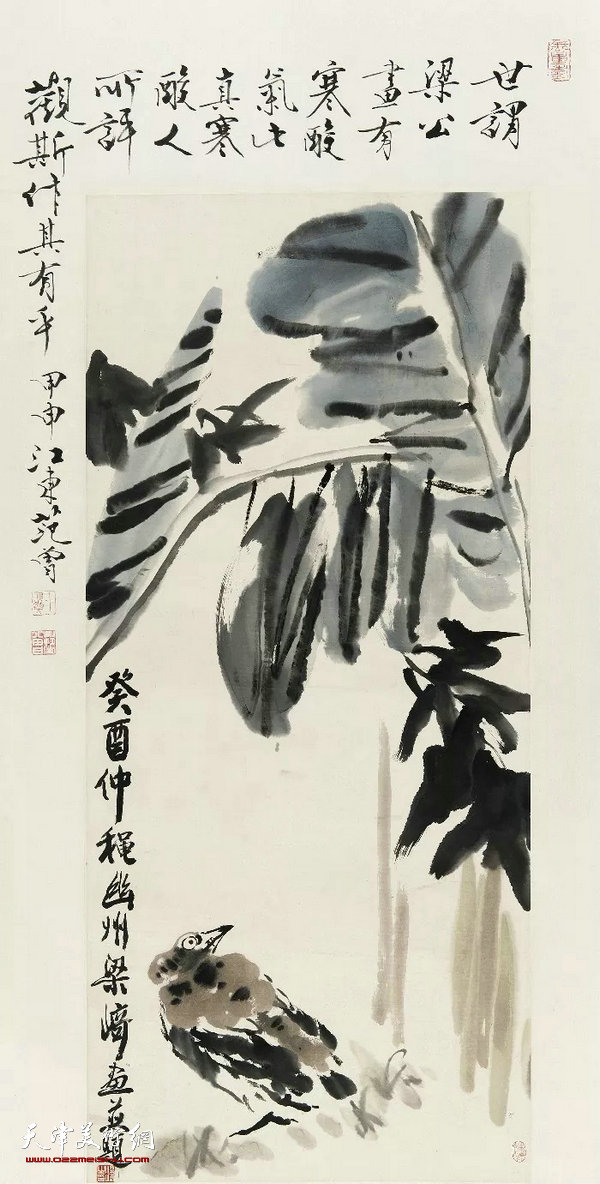 世謂
梁公
畫有
寒酸
氣此
真寒
酸人
所評
觀斯作其有乎 甲申江東范曾
癸酉仲穐幽州梁崎画並題
天津美術網
www.022meishu.com